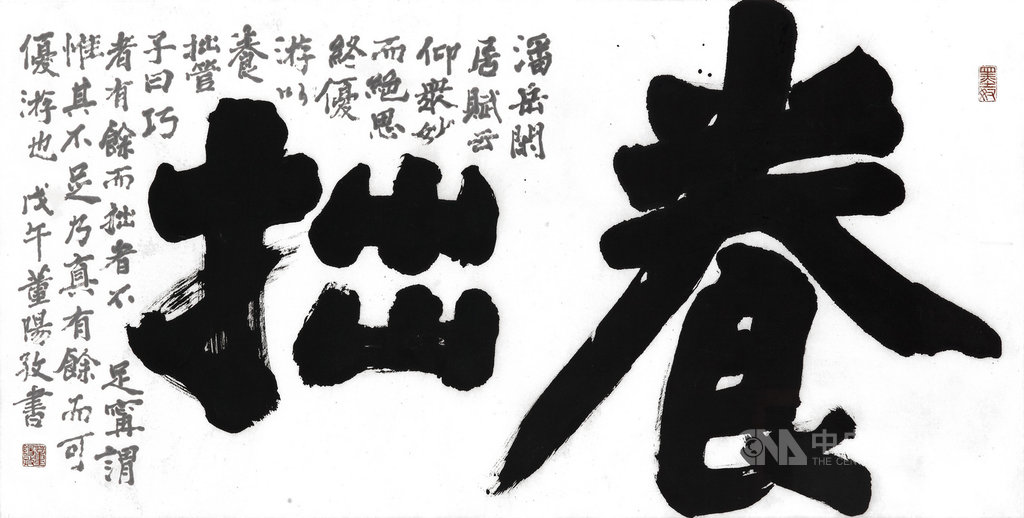 養拙
潘岳閑
居賦云
仰衆妙
而絕思
終優
游以
養
拙管
子曰巧
者有餘而拙者不足甯謂
惟其不足乃真有餘而可
優游也 戊午董陽孜書
CNA 中
THE CEN